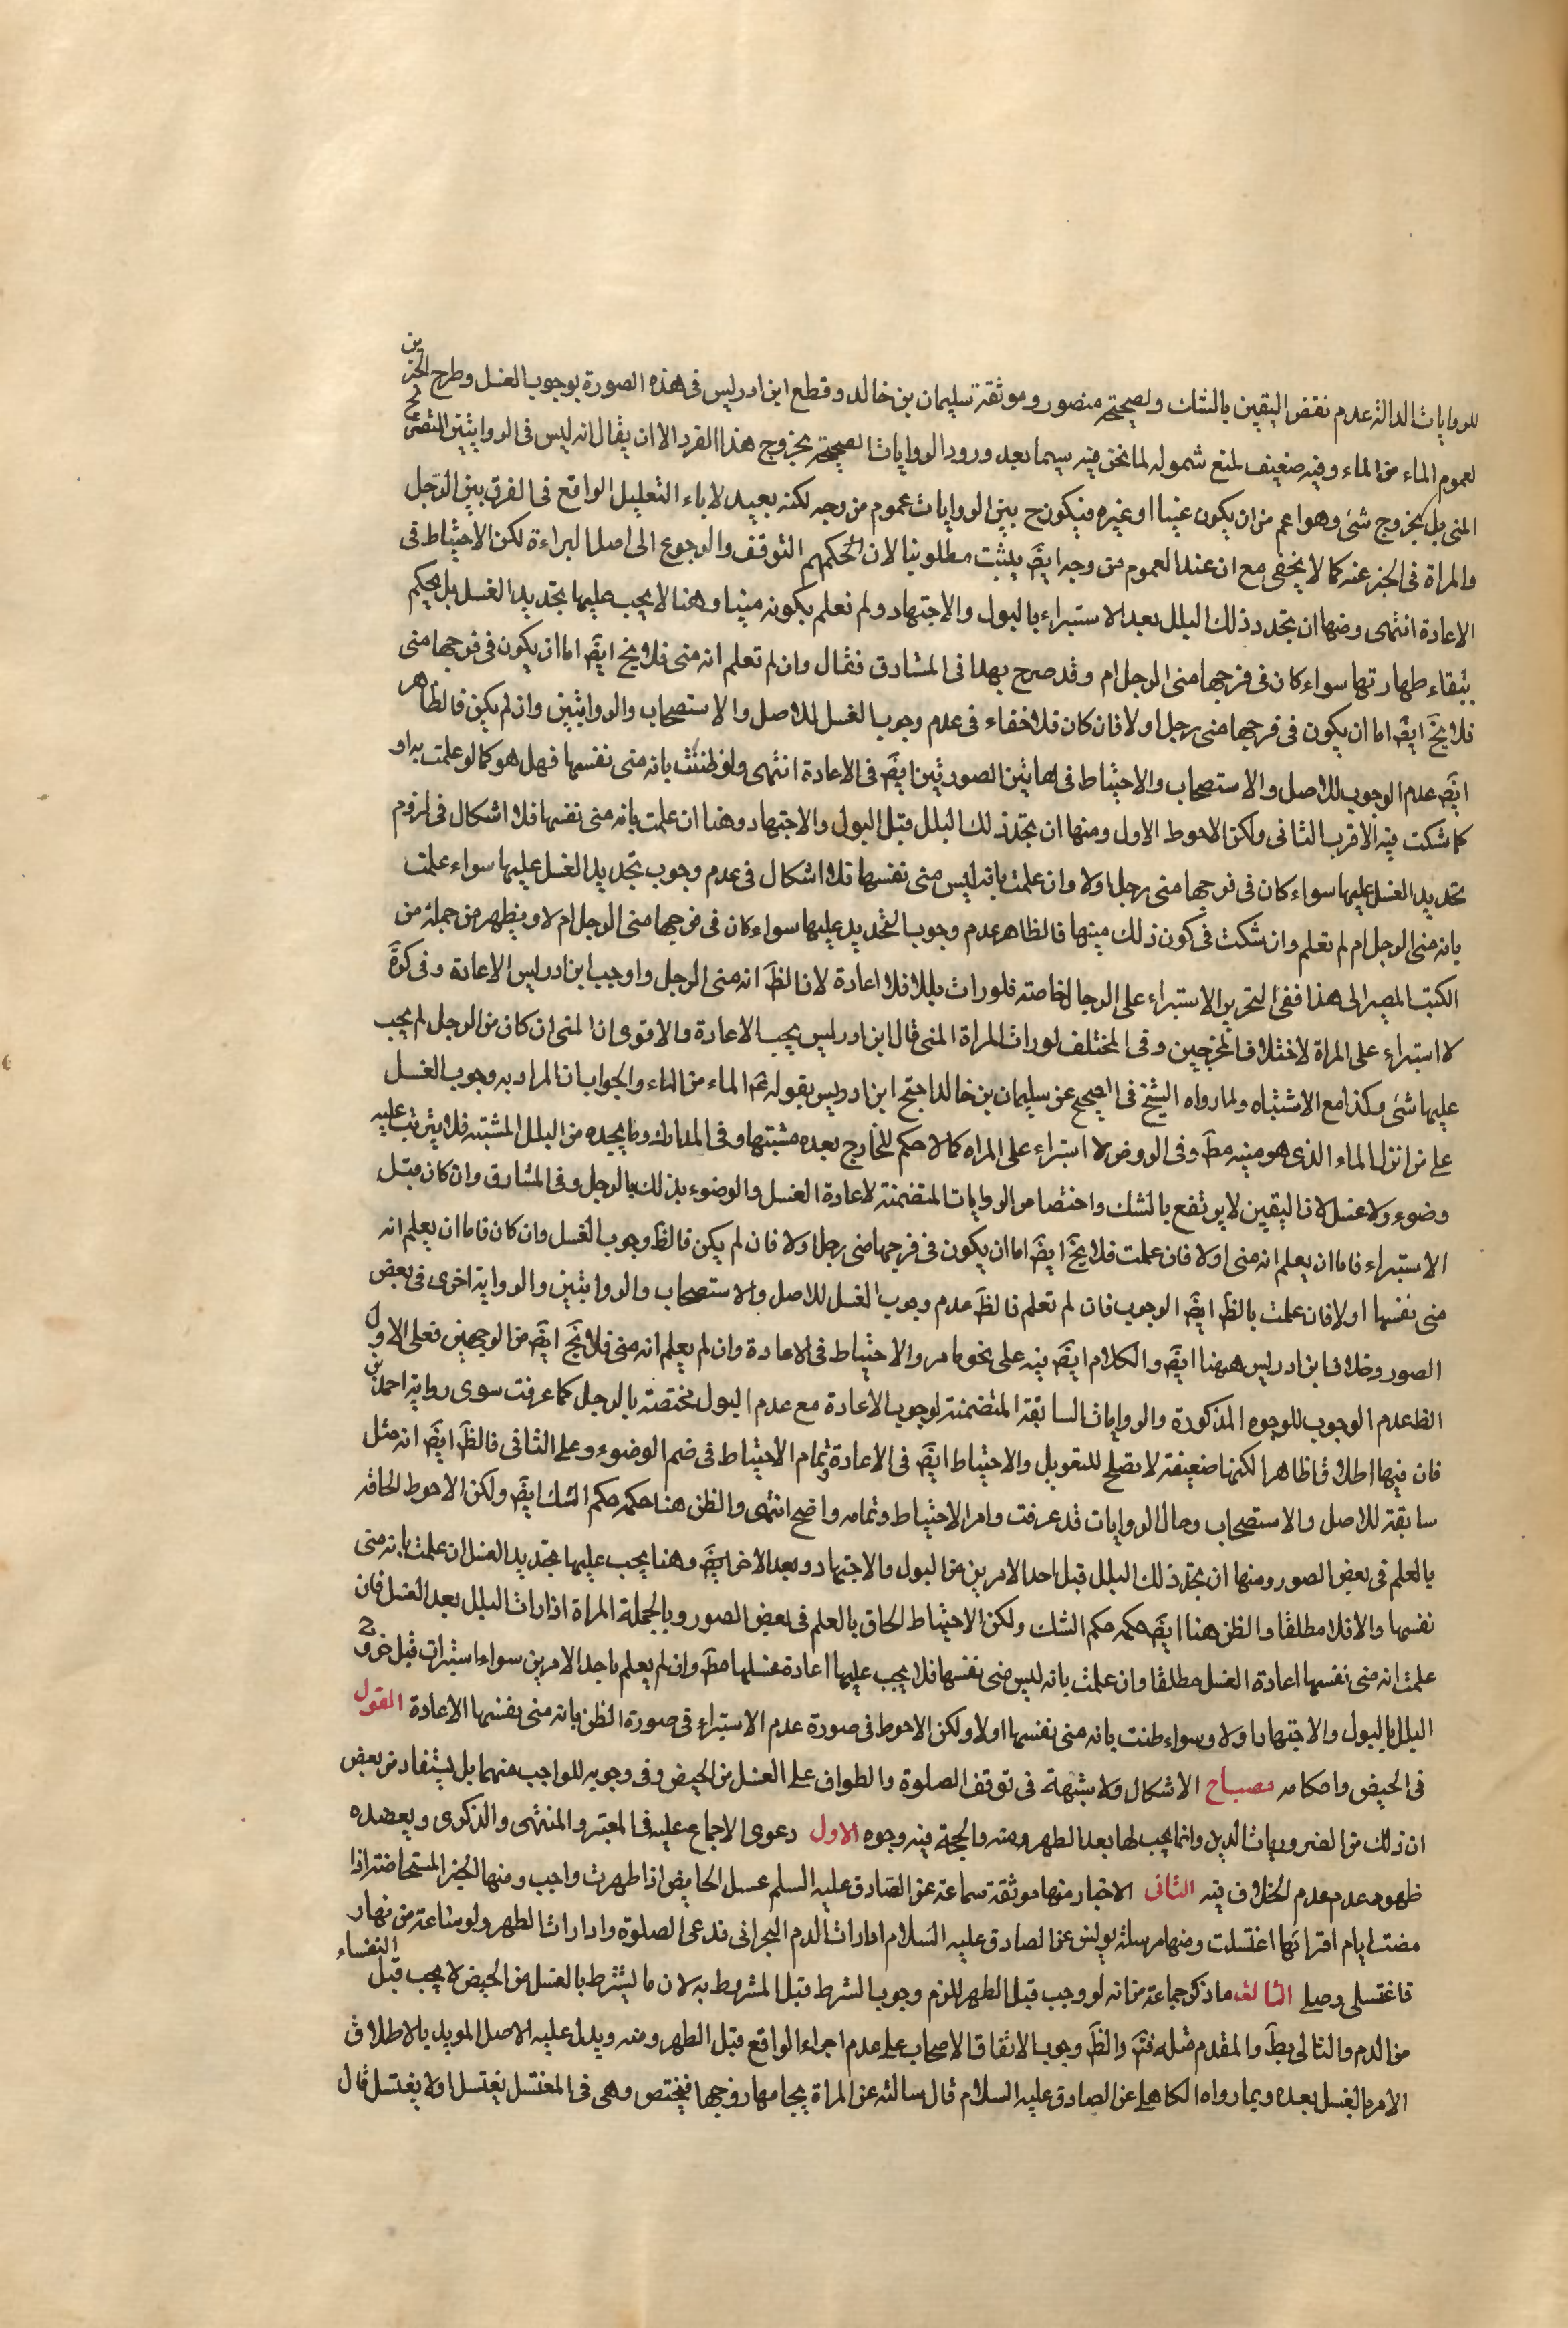 للروايات الدالة عدم نقض اليقين بالشك ولصحيحة منصور وموثقة سليمان بن خالد وقطع ابن ادريس فى هذه الصورة بوجوب الغسل وطرح الخبرين
لعموم الماء من الماء وفيه ضعيف لمنع شموله لما نحن فيه سيما بعد ورود الروايات الصحيحة بخروج هذا الفرد الا ان يقال انه ليس فى الروايتين التصريح
المنى بل بخروج شئ وهو اعم من ان يكون منيا او غيره فيكون ح بين الروايات عموم من وجه لكنه بعيد لاباء التعليل الواقع فى الفرق بين الرجل
والمراة فى الخبر عنه كما لا يخفى مع ان عند العموم من وجه ايضَ يثبت مطلوبنا لان الحكم ثم التوقف والرجوع الى اصل البراءة لكن الاحتياط فى
الاعادة انتهى ومنها ان يتجدد ذلك البلل بعد الاستبراء بالبول والاجتهاد ولم تعلم بكونه منيا وهنا لا يجب عليها تجديد الغسل بل يحكم
ببقاء طهارتها سواء كان فى فرجها منى الرجل ام وقد صرح بهذا فى المشارق فقال وان لم تعلم انه منى فلا يخ ايضَ اما ان يكون فى فرجها منى
فلا يخَ ايضَ اما ان يكون فى فرجها منى رجل او لا فان كان فلا خفاء فى عدم وجوب الغسل للاصل والاستصحاب والروايتين وان لم يكن فالظاهر
ايضَ عدم الوجوب للاصل والاستصحاب والاحتياط فى هاتين الصورتين ايضَ فى الاعادة انتهى ولو ظننت بانه منى نفسها فهل هو كما لو علمت به او
كما شكت فيه الاقرب الثانى ولكن الاحوط الاول ومنها ان يتجدد ذلك البلل قبل البول والاجتهاد وهنا ان علمت بانه منى نفسها فلا اشكال فى لزوم
تجديد الغسل عليها سواء كان فى فرجها منى رجل او لا وان علمت بانه ليس منى نفسها فلا اشكال فى عدم وجوب تجديد الغسل عليها سواء علمت
بانه منى الرجل ام لم تعلم وان شكت فى كون ذلك منيها فالظاهر عدم وجوب التجديد عليها سواء كان فى فرجها منى الرجل ام لا ويظهر من جملة من
الكتب المصير الى هذا ففى التحرير الاستبراء على الرجال خاصة فلو رات بللا فلا اعادة لان الظَ انه منى الرجل واوجب ابن ادريس الاعادة وفى كرةَ
لا استبراء على المراة لاختلاف المخرجين وفى المختلف لو رات المراة المنى قال ابن ادريس يجب الاعادة والاقوى ان المنى ان كان من الرجل لم يجب
عليها شئ وكذا مع الاشتباه ولما رواه الشيخ فى الصحيح عن سليمان بن خالد احتج ابن ادريس بقوله عَم الماء من الماء والجواب ان المراد به وجوب الغسل
على من انزل الماء الذى هو منيه مطَ وفى الروض لا استبراء على المراة كما لا حكم للخارج بعده مشتبها وفى المدارك وما يجده من البلل المشتبه فلا يترتب عليه
وضوء ولا غسل لان اليقين لا يرتفع بالشك واختصاص الروايات المتضمنة لاعادة الغسل والوضوء بذلك بالرجل وفى المشارق وان كان قبل
الاستبراء فاما ان يعلم انه منى او لا فان علمت فلا يخَ ايضَ اما ان يكون فى فرجها منى رجل او لا فان لم يكن فالظَ وجوب الغسل وان كان فاما ان يعلم انه
منى نفسها او لا فان علمت بالظَ ايضَ الوجوب فان لم تعلم فالظَ عدم وجوب الغسل للاصل والاستصحاب والروايتين والرواية اخرى فى بعض
الصور وخلاف ابن ادريس ههنا ايضَ والكلام ايضَ فيه على نحو ما مر والاحتياط فى الاعادة وان لم يعلم انه منى فلا يَخ ايضَ من الوجهين فعلى الاول
الظَ عدم الوجوب للوجوه المذكورة والروايات السابقة المتضمنة لوجوب الاعادة مع عدم البول مختصة بالرجل كما عرفت سوى رواية احمد بن
فان فيها اطلاقا ظاهرا لكنها ضعيفة لا تصلح للتعويل والاحتياط ايضَ فى الاعادة وتمام الاحتياط فى ضم الوضوء وعلى الثانى فالظَ ايضَ انه مثل
سابقه للاصل والاستصحاب وحال الروايات قد عرفت وامر الاحتياط وتمامه واضح انتهى والظن هنا حكمه حكم الشك ايضَ ولكن الاحوط الحاقه
بالعلم فى بعض الصور ومنها ان يتجدد ذلك البلل قبل احد الامرين من البول والاجتهاد وبعد الاخر ايضَ وهنا يجب عليها تجديد الغسل ان علمت بانه منى
نفسها والا فلا مطلقا والظن هنا ايضَ حكمه حكم الشك ولكن الاحتياط الحاق بالعلم فى بعض الصور وبالجملة المراة اذا رات البلل بعد الغسل فان
علمت انه منى نفسها اعادة الغسل مطلقا وان علمت بانه ليس منى نفسها فلا يجب عليها اعادة غسلها مطَ وان لم يعلم باحد الامرين سواء استبرات قبل خروج
البلل بالبول والاجتهاد او لا وسواء ظنت بانه منى نفسها او لا ولكن الاحوط فى صورة عدم الاستبراء فى صورة الظن بانه منى نفسها الاعادة القول
فى الحيض واحكامه مصباح الاشكال ولا شبهة فى توقف الصلوة والطواف على الغسل من الحيض وفى وجوبه للواجب منهما بل يستفاد من بعض
ان ذلك من الضروريات الدين وانما يجب لها بعد الطهر ومنه والحجة فيه وجوه الاول دعوى الاجماع عليه فى المعتبر والمنتهى والذكرى ويعضده
ظهور عدم عدم الخلاف فيه الثانى الاخبار منها موثقة سماعة عن الصادق عليه السلم غسل الحايض اذا طهرت واجب ومنها الخبر المستحاضة اذا
مضت ايام اقرائها اغتسلت ومنها مرسلة يونس عن الصادق عليه السلام اذا رات الدم البحرانى فدعى الصلوة واذا رات الطهر ولو ساعة من نهار
فاغتسلى وصلى الثالث ما ذكر جماعة من انه لو وجب قبل الطهر للزم وجوب الشرط قبل المشروط به لان ما يشترط بالغسل من الحيض لا يجب قبل النفساء
من الدم والتالى بطَ والمقدم مثله فتَم والظَ وجوب الاتفاق الاصحاب على عدم اجراء الواقع قبل الطهر ومنه ويدل عليه الاصل المويد بالاطلاق
الامر بالغسل بعده وبما رواه الكاهلى عن الصادق عليه السلام قال سالته عن المراة يجامعها زوجها فتحيض وهى فى المغتسل يغتسل اولا يغتسل قال